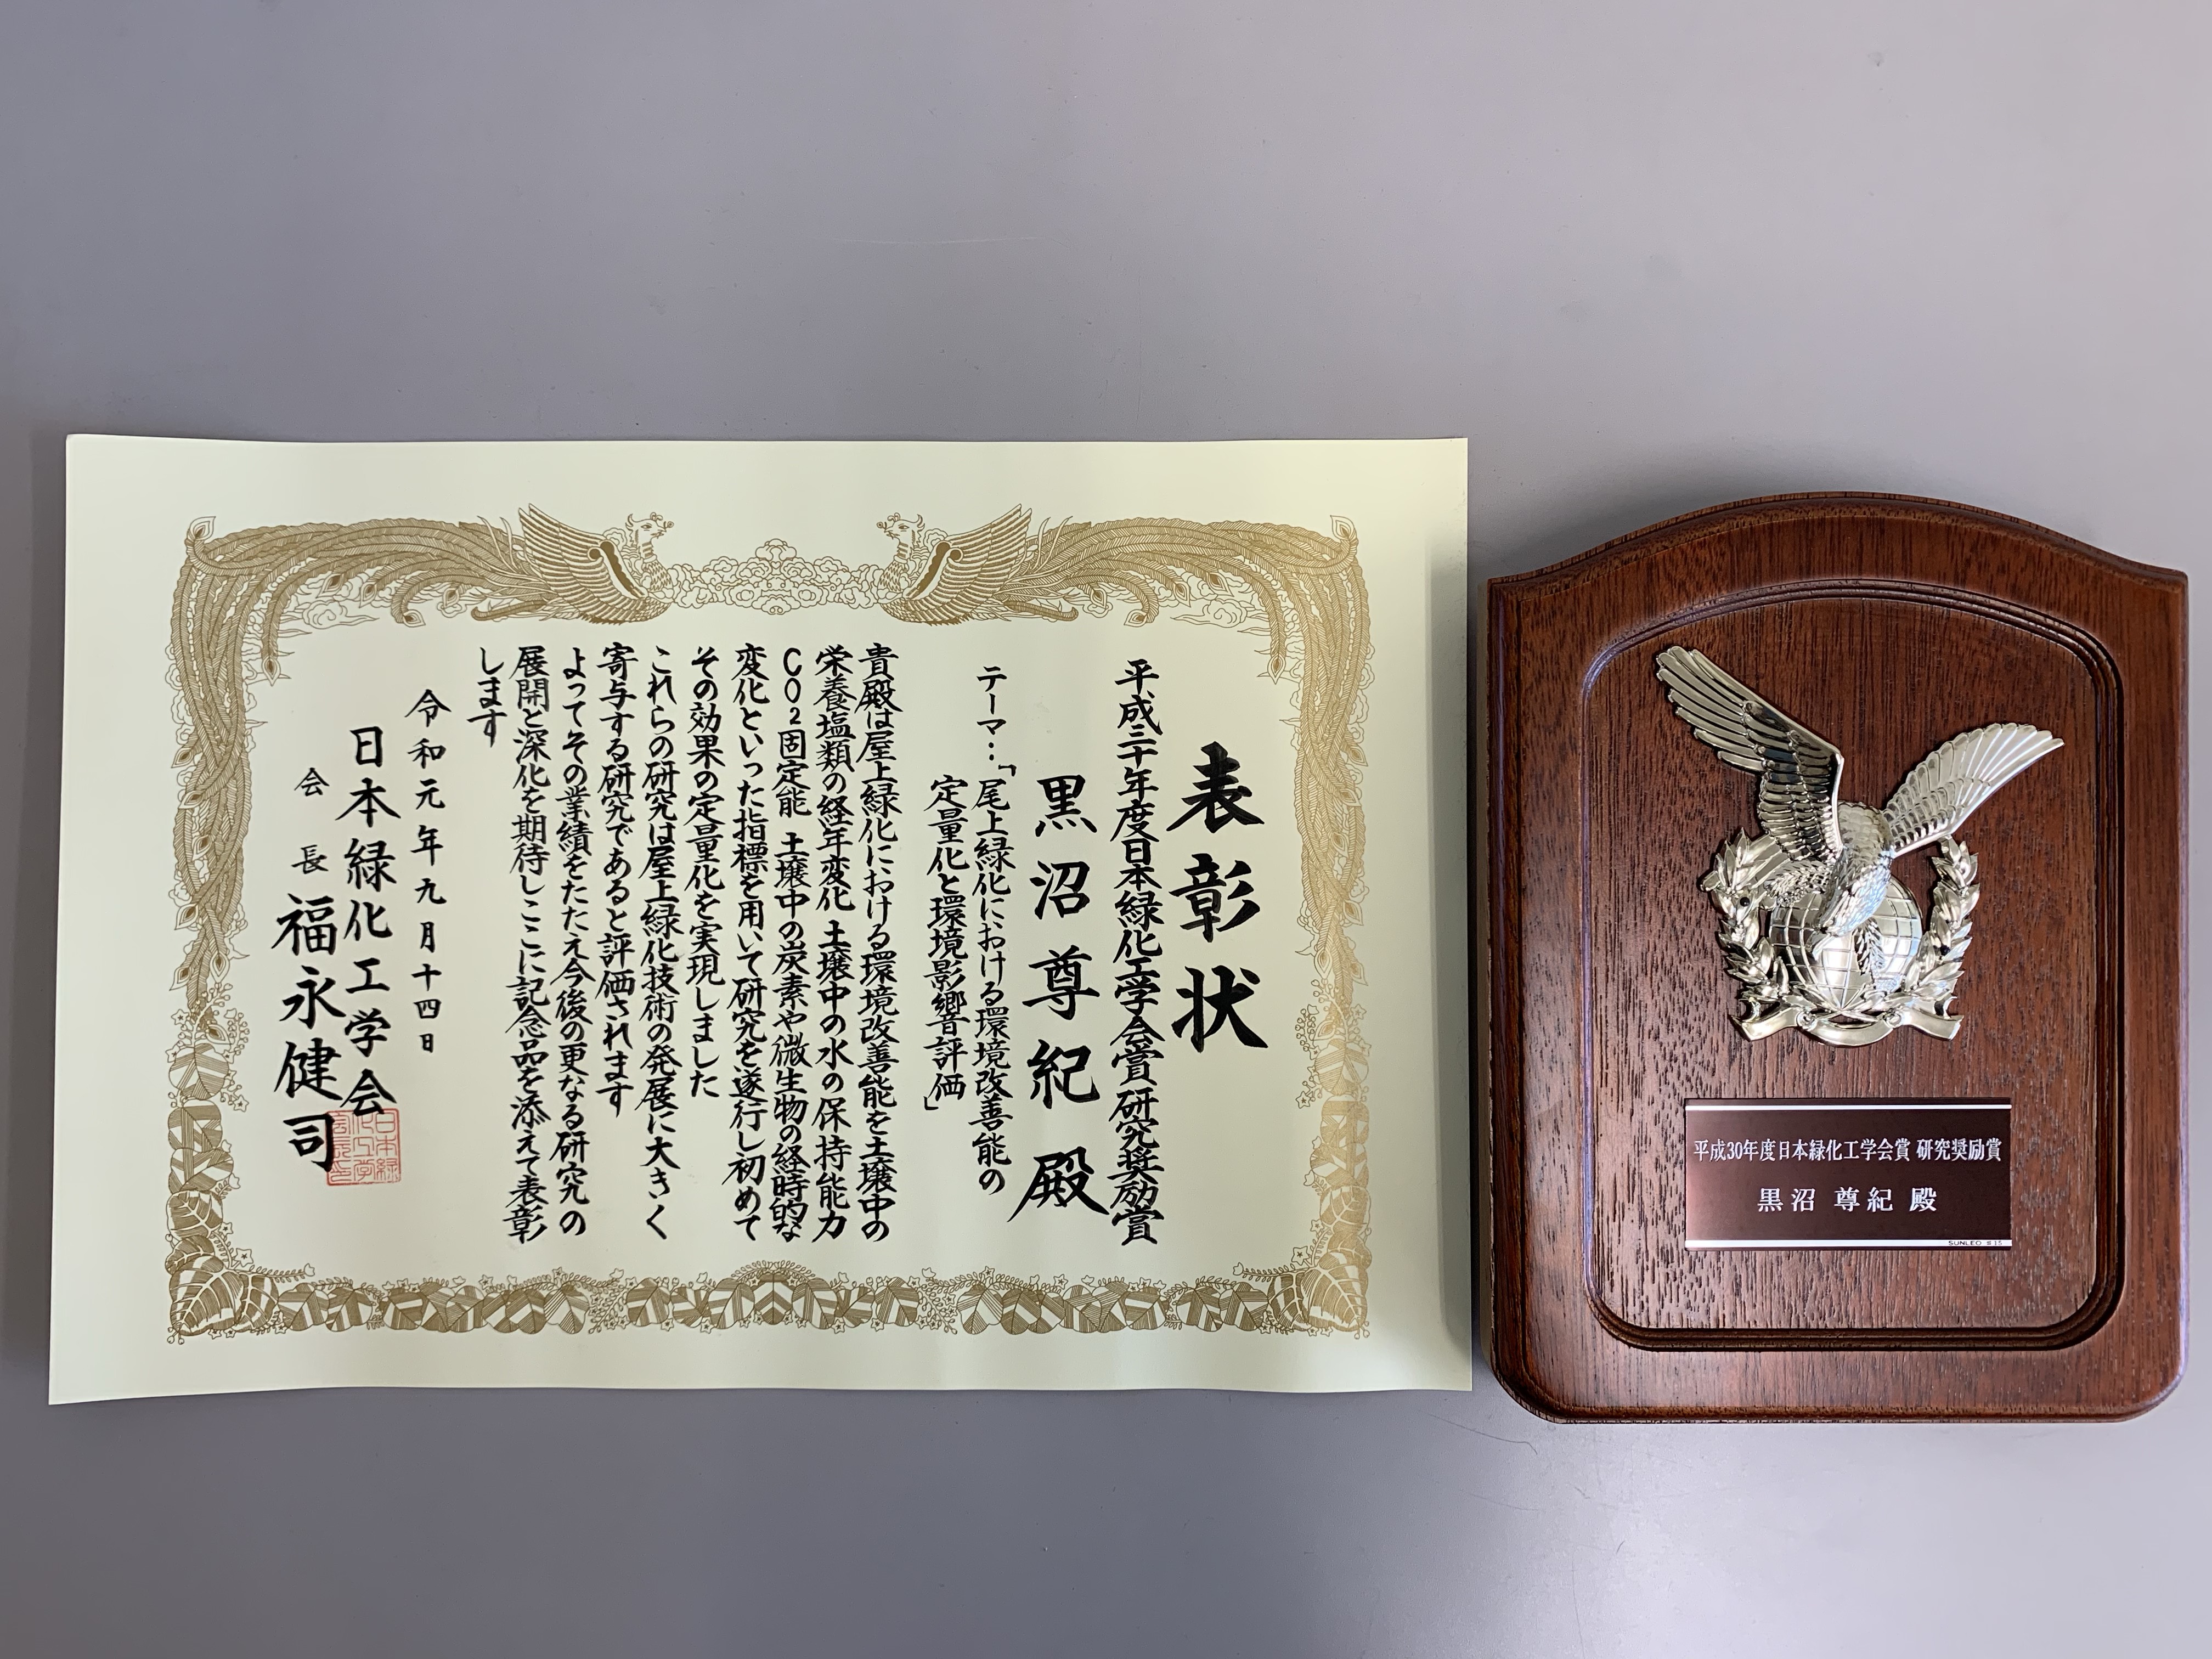 表彰状
平成三十年度日本緑化工学会賞研究奨励賞
黒沼尊紀殿
テーマ：「尾上緑化における環境改善能の
定量化と環境影響評価」
貴殿は屋上緑化における環境改善能を土壌中の
栄養塩類の経年変化 土壌中の水の保持能力
CO2固定能 土壌中の炭素や微生物の経時的な
変化といった指標を用いて研究を遂行し初めて
その効果の定量化を実現しました
これらの研究は屋上緑化技術の発展に大きく
寄与する研究であると評価されます
よってその業績をたたえ今後の更なる研究の
展開と深化を期待しここに記念品を添えて表彰
します
令和元年九月十四日
日本緑化工学会
会長 福永健司
平成30年度日本緑化工学会賞 研究奨励賞
黒沼 尊紀 殿
SUNLEO #15